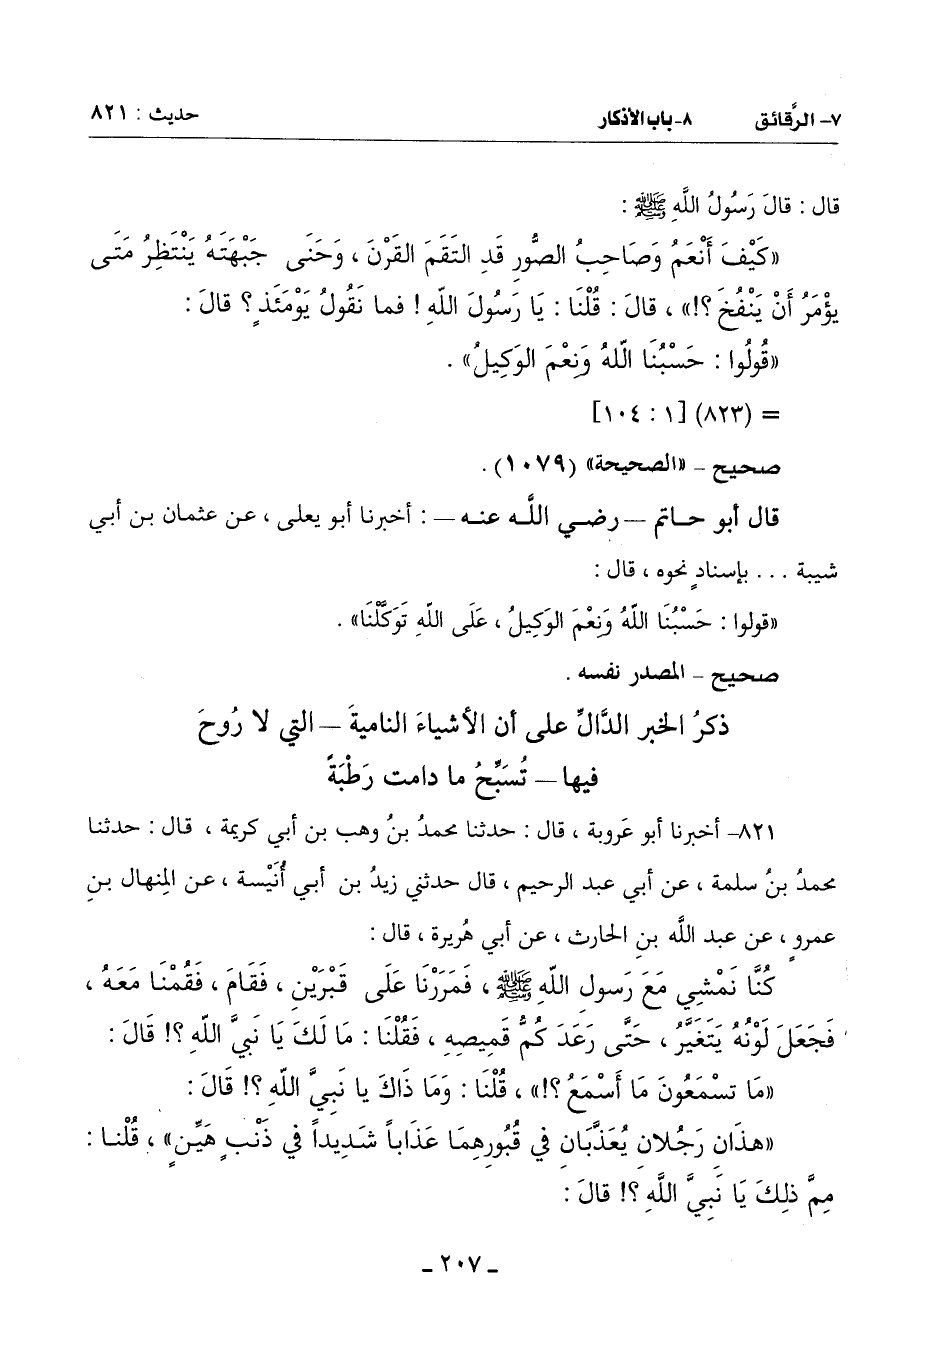 ٧- الرَّقائق ٨- باب الأذكار حديث : ٨٢١
قال : قالَ رَسُولُ اللَّهِ ﷺ :
«كَيْفَ أَنْعَمُ وَصَاحِبُ الصُّورِ قَدِ التَقَمَ القَرْنَ ، وَحَنَى جَبْهَتَهُ يَنْتَظِرُ مَتَى
يؤْمَرُ أَنْ يَنْفُخَ ؟!» ، قالَ : قُلْنَا : يَا رَسُولَ اللَّهِ ! فما نَقُولُ يَوْمَئذٍ ؟ قالَ :
«قُولُوا : حَسْبُنَا اللَّهُ وَنِعْمَ الوَكِيلُ» .
= (٨٢٣) [١ : ١٠٤]
صحيح - «الصحيحة» (١٠٧٩) .
قال أبو حاتم — رضي اللَّه عنه — : أخبرنا أبو يعلى ، عن عثمان بن أبي
شيبة ... بإسنادٍ نحوه ، قال :
«قولوا : حَسْبُنَا اللَّهُ وَنِعْمَ الوَكِيلُ ، عَلَى اللَّهِ تَوَكَّلْنَا» .
صحيح - المصدر نفسه .
ذكرُ الخبر الدَّالِّ على أن الأشياءَ الناميةَ — التي لا رُوحَ
فيها — تُسَبِّحُ ما دامت رَطْبَةً
٨٢١- أخبرنا أبو عَروبة ، قال : حدثنا محمدُ بنُ وهب بن أبي كريمة ، قال : حدثنا
محمدُ بنُ سلمة ، عن أبي عبد الرحيم ، قال حدثني زيدُ بن أبي أُنَيْسة ، عن المِنهال بنِ
عمروٍ ، عن عبد اللَّه بنِ الحارث ، عن أبي هُريرة ، قال :
كُنَّا نَمْشِي مَعَ رَسولِ اللَّهِ ﷺ ، فَمَرَرْنَا عَلَى قَبْرَيْنِ ، فَقَامَ ، فَقُمْنَا مَعَهُ ،
فَجَعَلَ لَوْنُهُ يَتَغَيَّرُ ، حَتَّى رَعَدَ كُمُّ قَمِيصِهِ ، فَقُلْنَا : مَا لَكَ يَا نَبِيَّ اللَّهِ ؟! قَالَ :
«مَا تسْمَعُونَ مَا أَسْمَعُ ؟!» ، قُلْنَا : وَمَا ذَاكَ يا نَبِيَّ اللَّهِ ؟! قَالَ :
«هذَانِ رَجُلانِ يُعَذَّبَانِ في قُبُورِهِمَا عَذَاباً شَدِيداً في ذَنْبٍ هَيِّنٍ» ، قُلْنا :
مِمَّ ذلِكَ يَا نَبِيَّ اللَّهِ ؟! قالَ :
- ٢٠٧ -